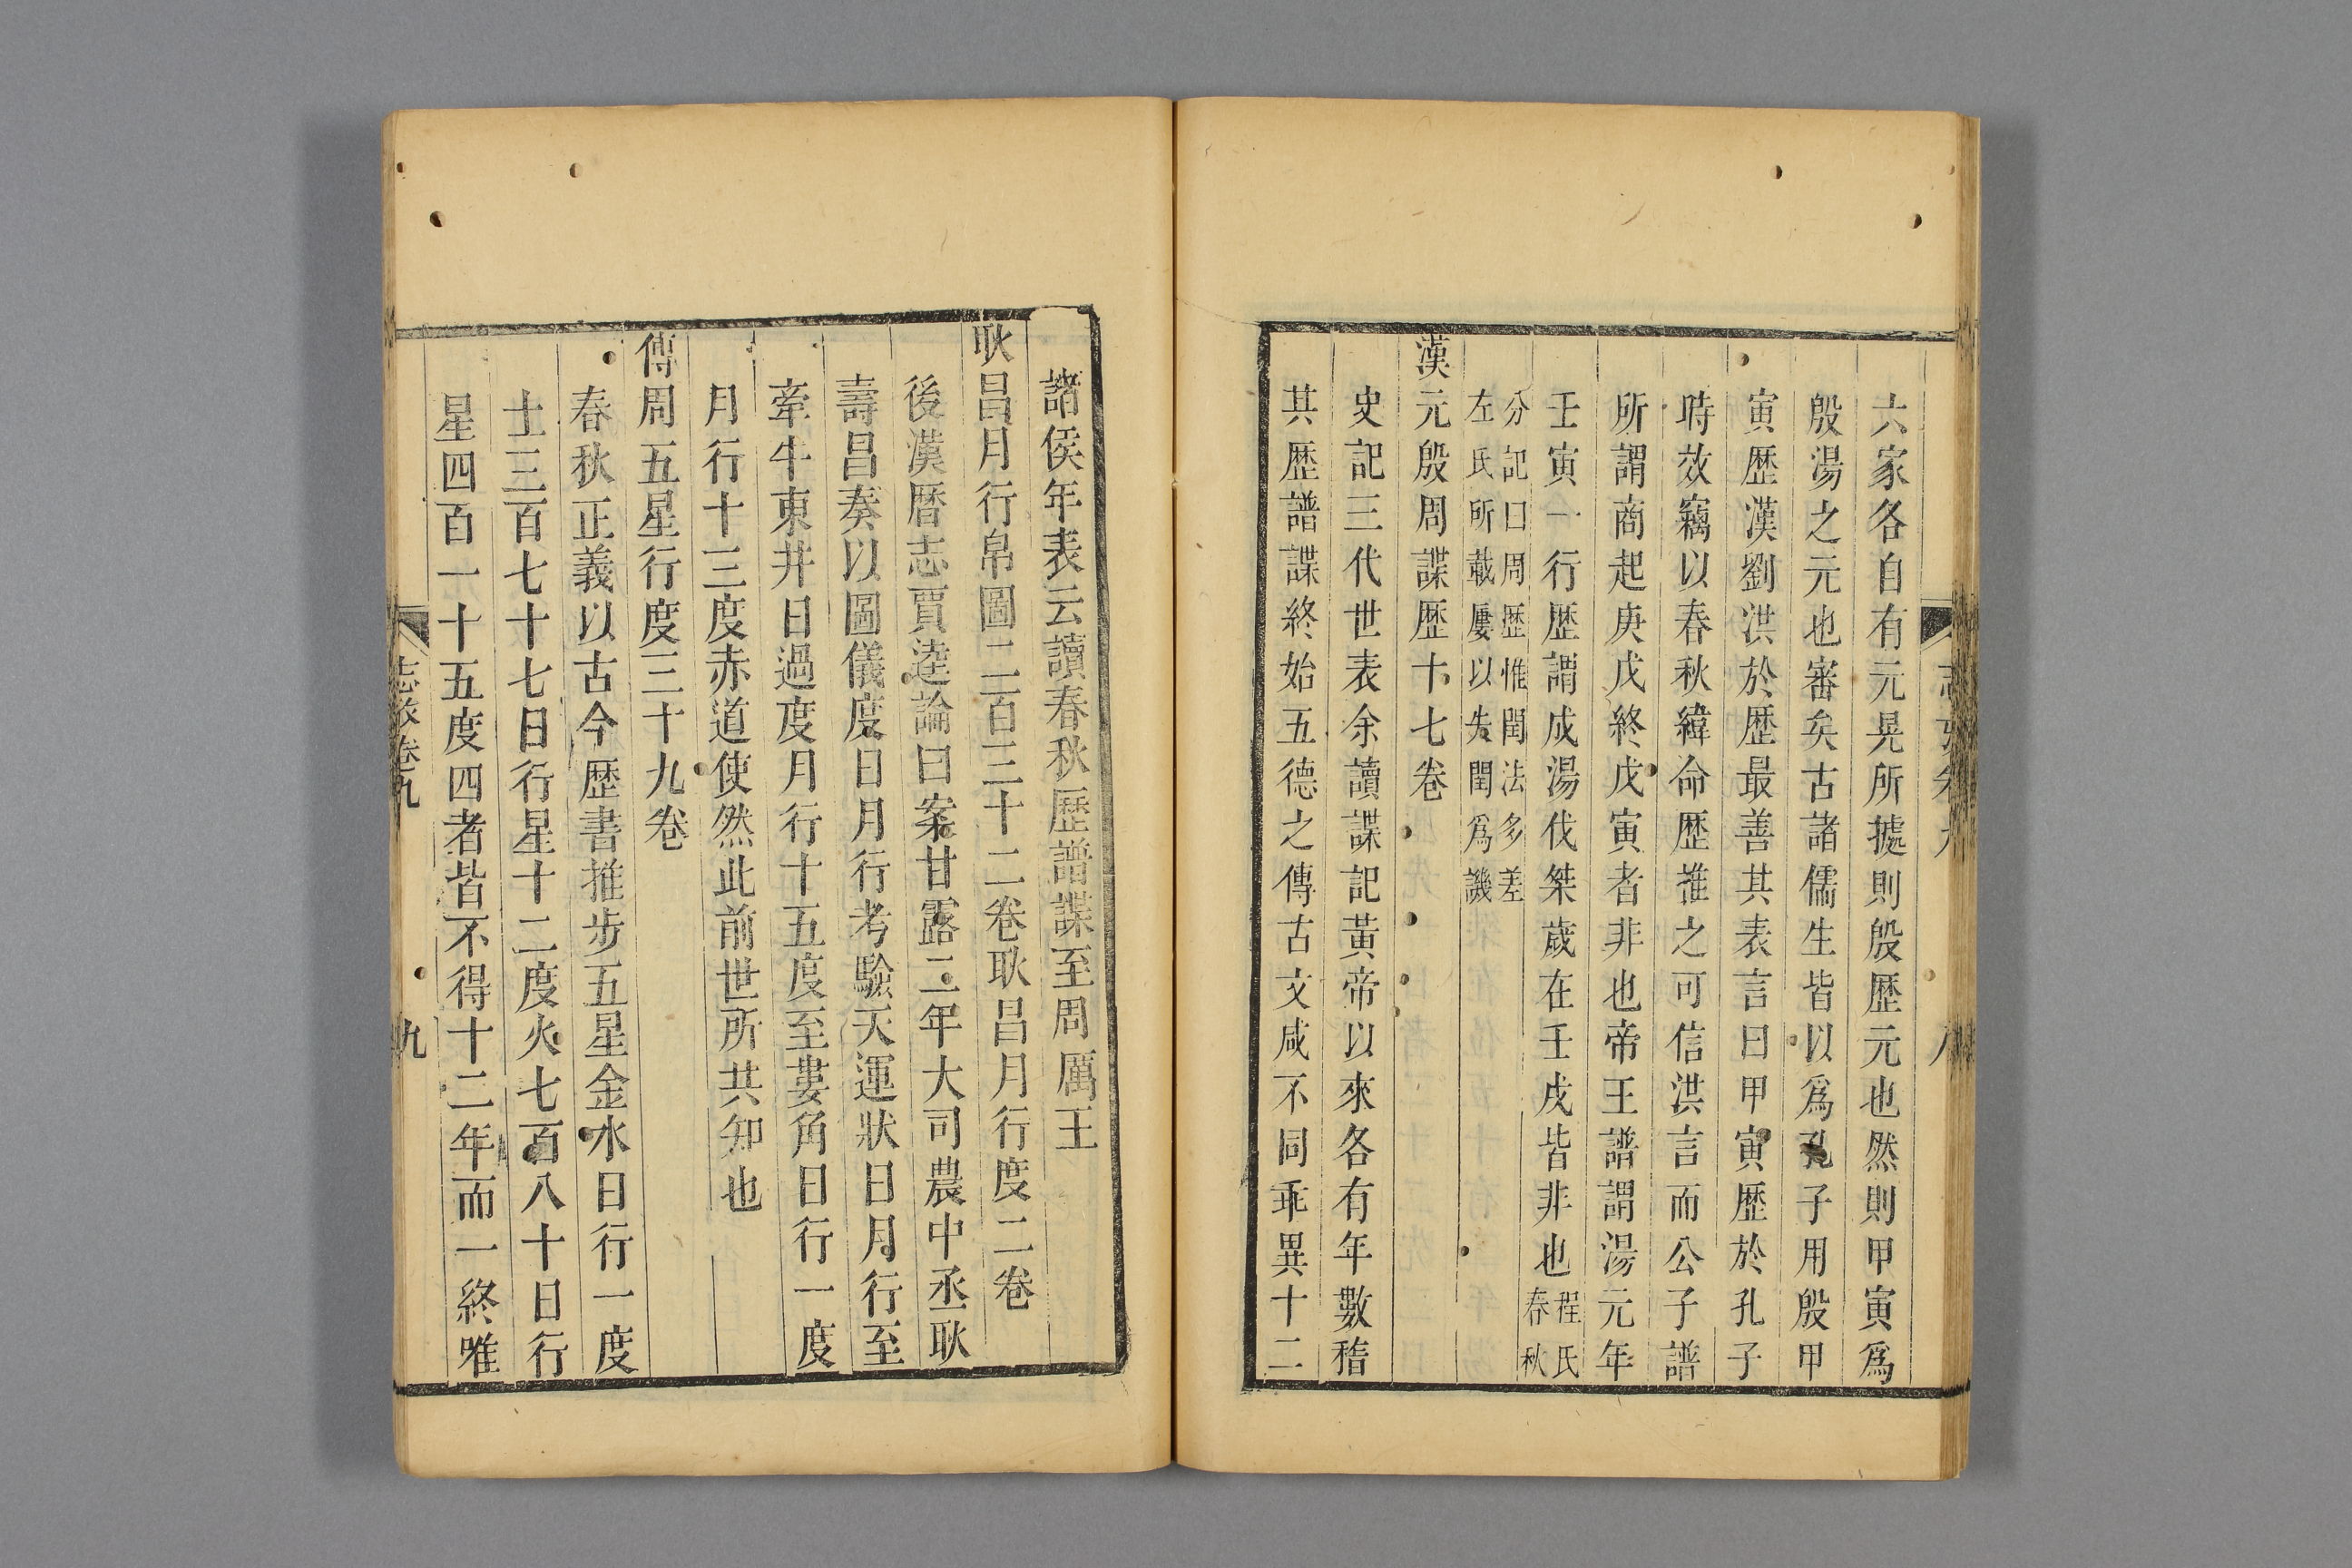 六家各自有元晃所據則殷歷元也然則甲寅爲
殷湯之元也審矣古諸儒生皆以爲孔子用殷甲
寅歷漢劉洪於歷最善其表言曰甲寅歷於孔子
時效竊以春秋緯命歷推之可信洪言而公子譜
所謂商起庚戌終戊寅者非也帝王譜謂湯元年
壬寅一行歷謂成湯伐桀歲在壬戌皆非也程氏春秋
分記曰周歷惟閏法多差
左氏所載屢以失閏爲譏
漢元殷周諜歷十七卷
史記三代世表余讀諜記黃帝以來各有年數稽
其歷譜諜終始五德之傳古文咸不同乖異十二
諸侯年表云讀春秋歷譜諜至周厲王
耿昌月行帛圖二百三十二卷耿昌月行度二卷
後漢曆志賈逵論曰案甘露二年大司農中丞耿
壽昌奏以圖儀度日月行考驗天運狀日月行至
牽牛東井日過度月行十五度至婁角日行一度
月行十三度赤道使然此前世所共知也
傳周五星行度三十九卷
春秋正義以古今歷書推步五星金水日行一度
土三百七十七日行星十二度火七百八十日行
星四百一十五度四者皆不得十二年而一終唯
志攷卷九
九